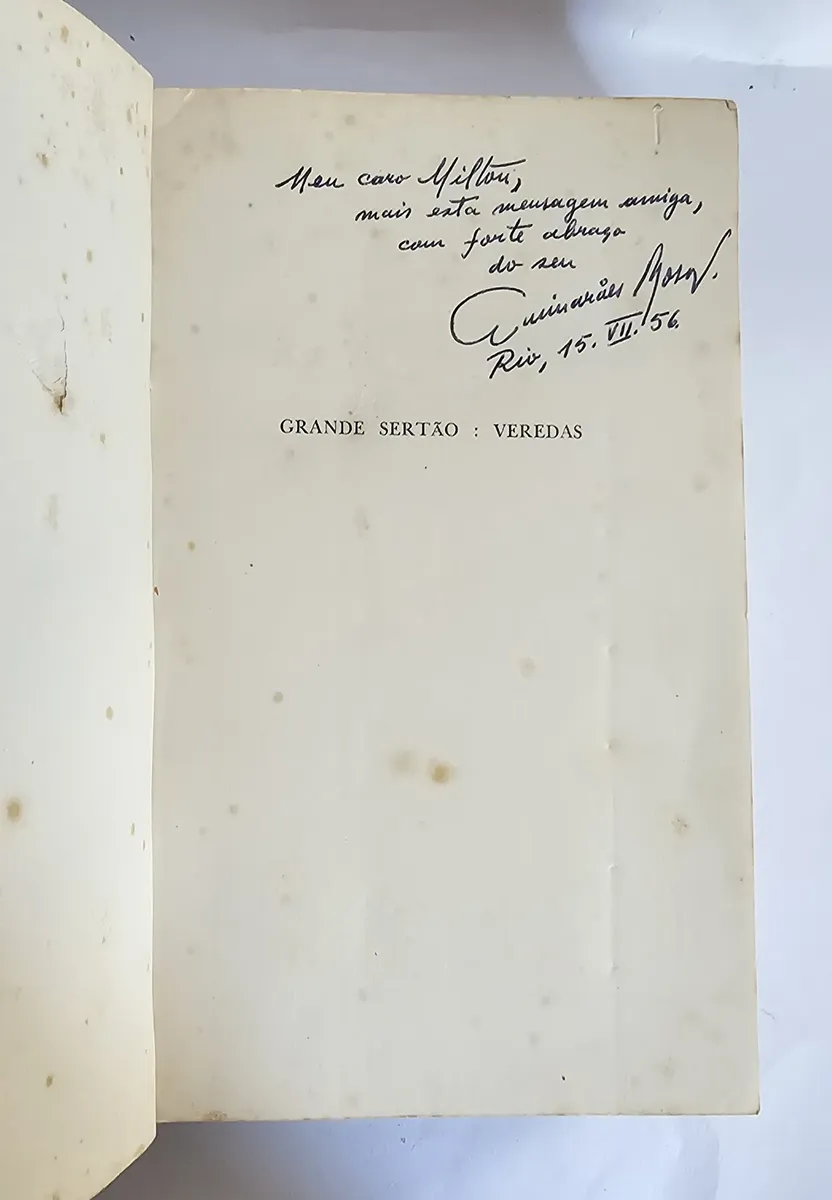 Meu caro Milton,
mais esta mensagem amiga,
com forte abraço
do seu
Guimarães Rosa.
Rio, 15. VII. 56.
GRANDE SERTÃO : VEREDAS